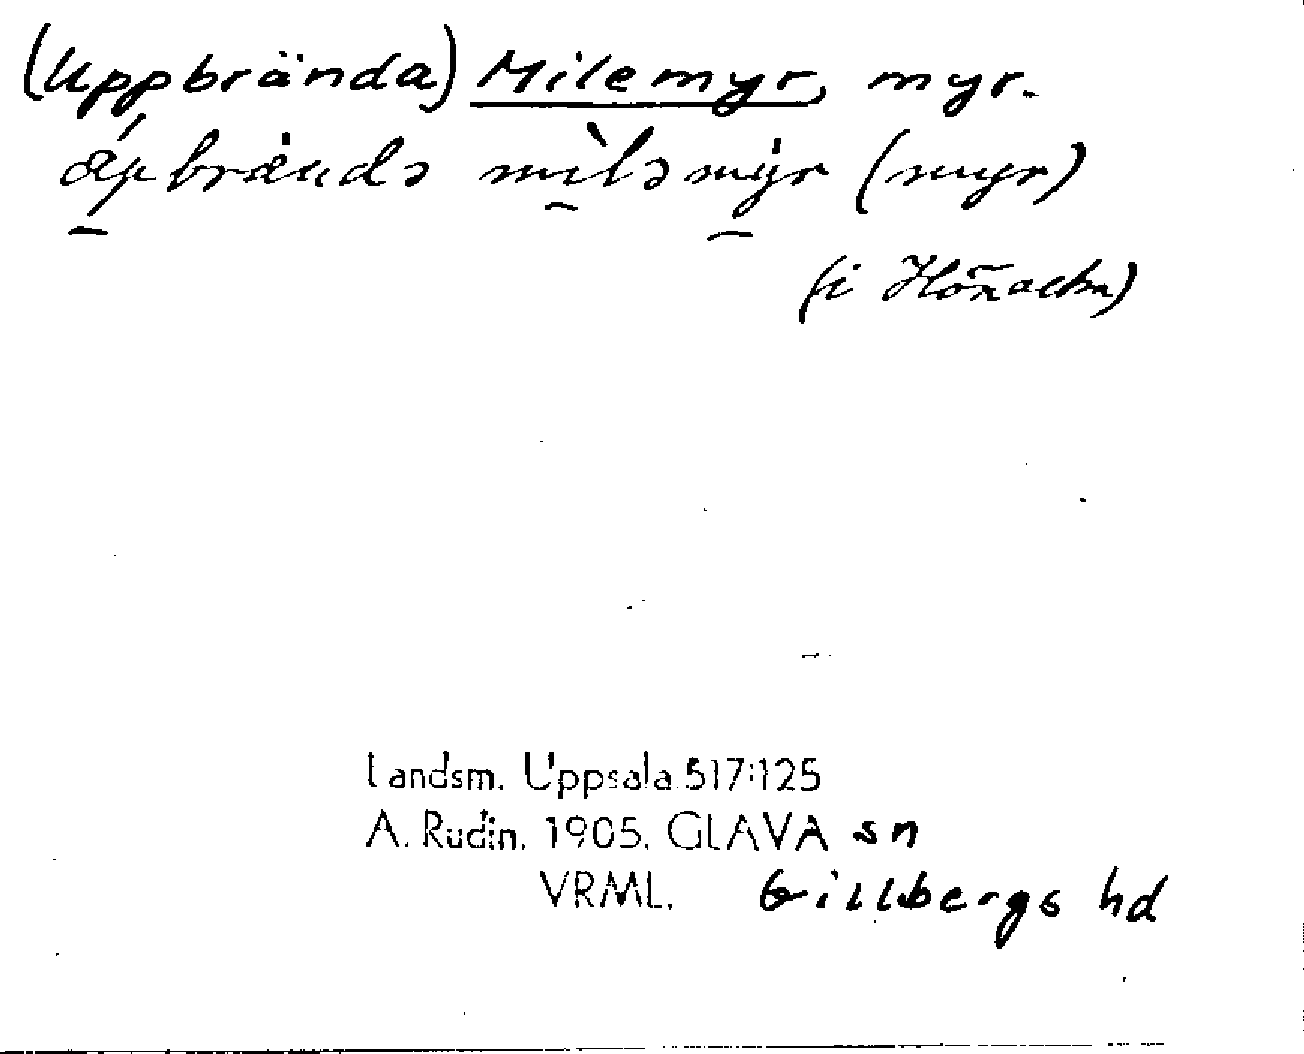 (Uppbrända) Milemyr, myr.
(myr)
(i
Landsm. Uppsala 517:125
A. Rudin. 1905. GLAVA sn
VRML. Gillbergs hd